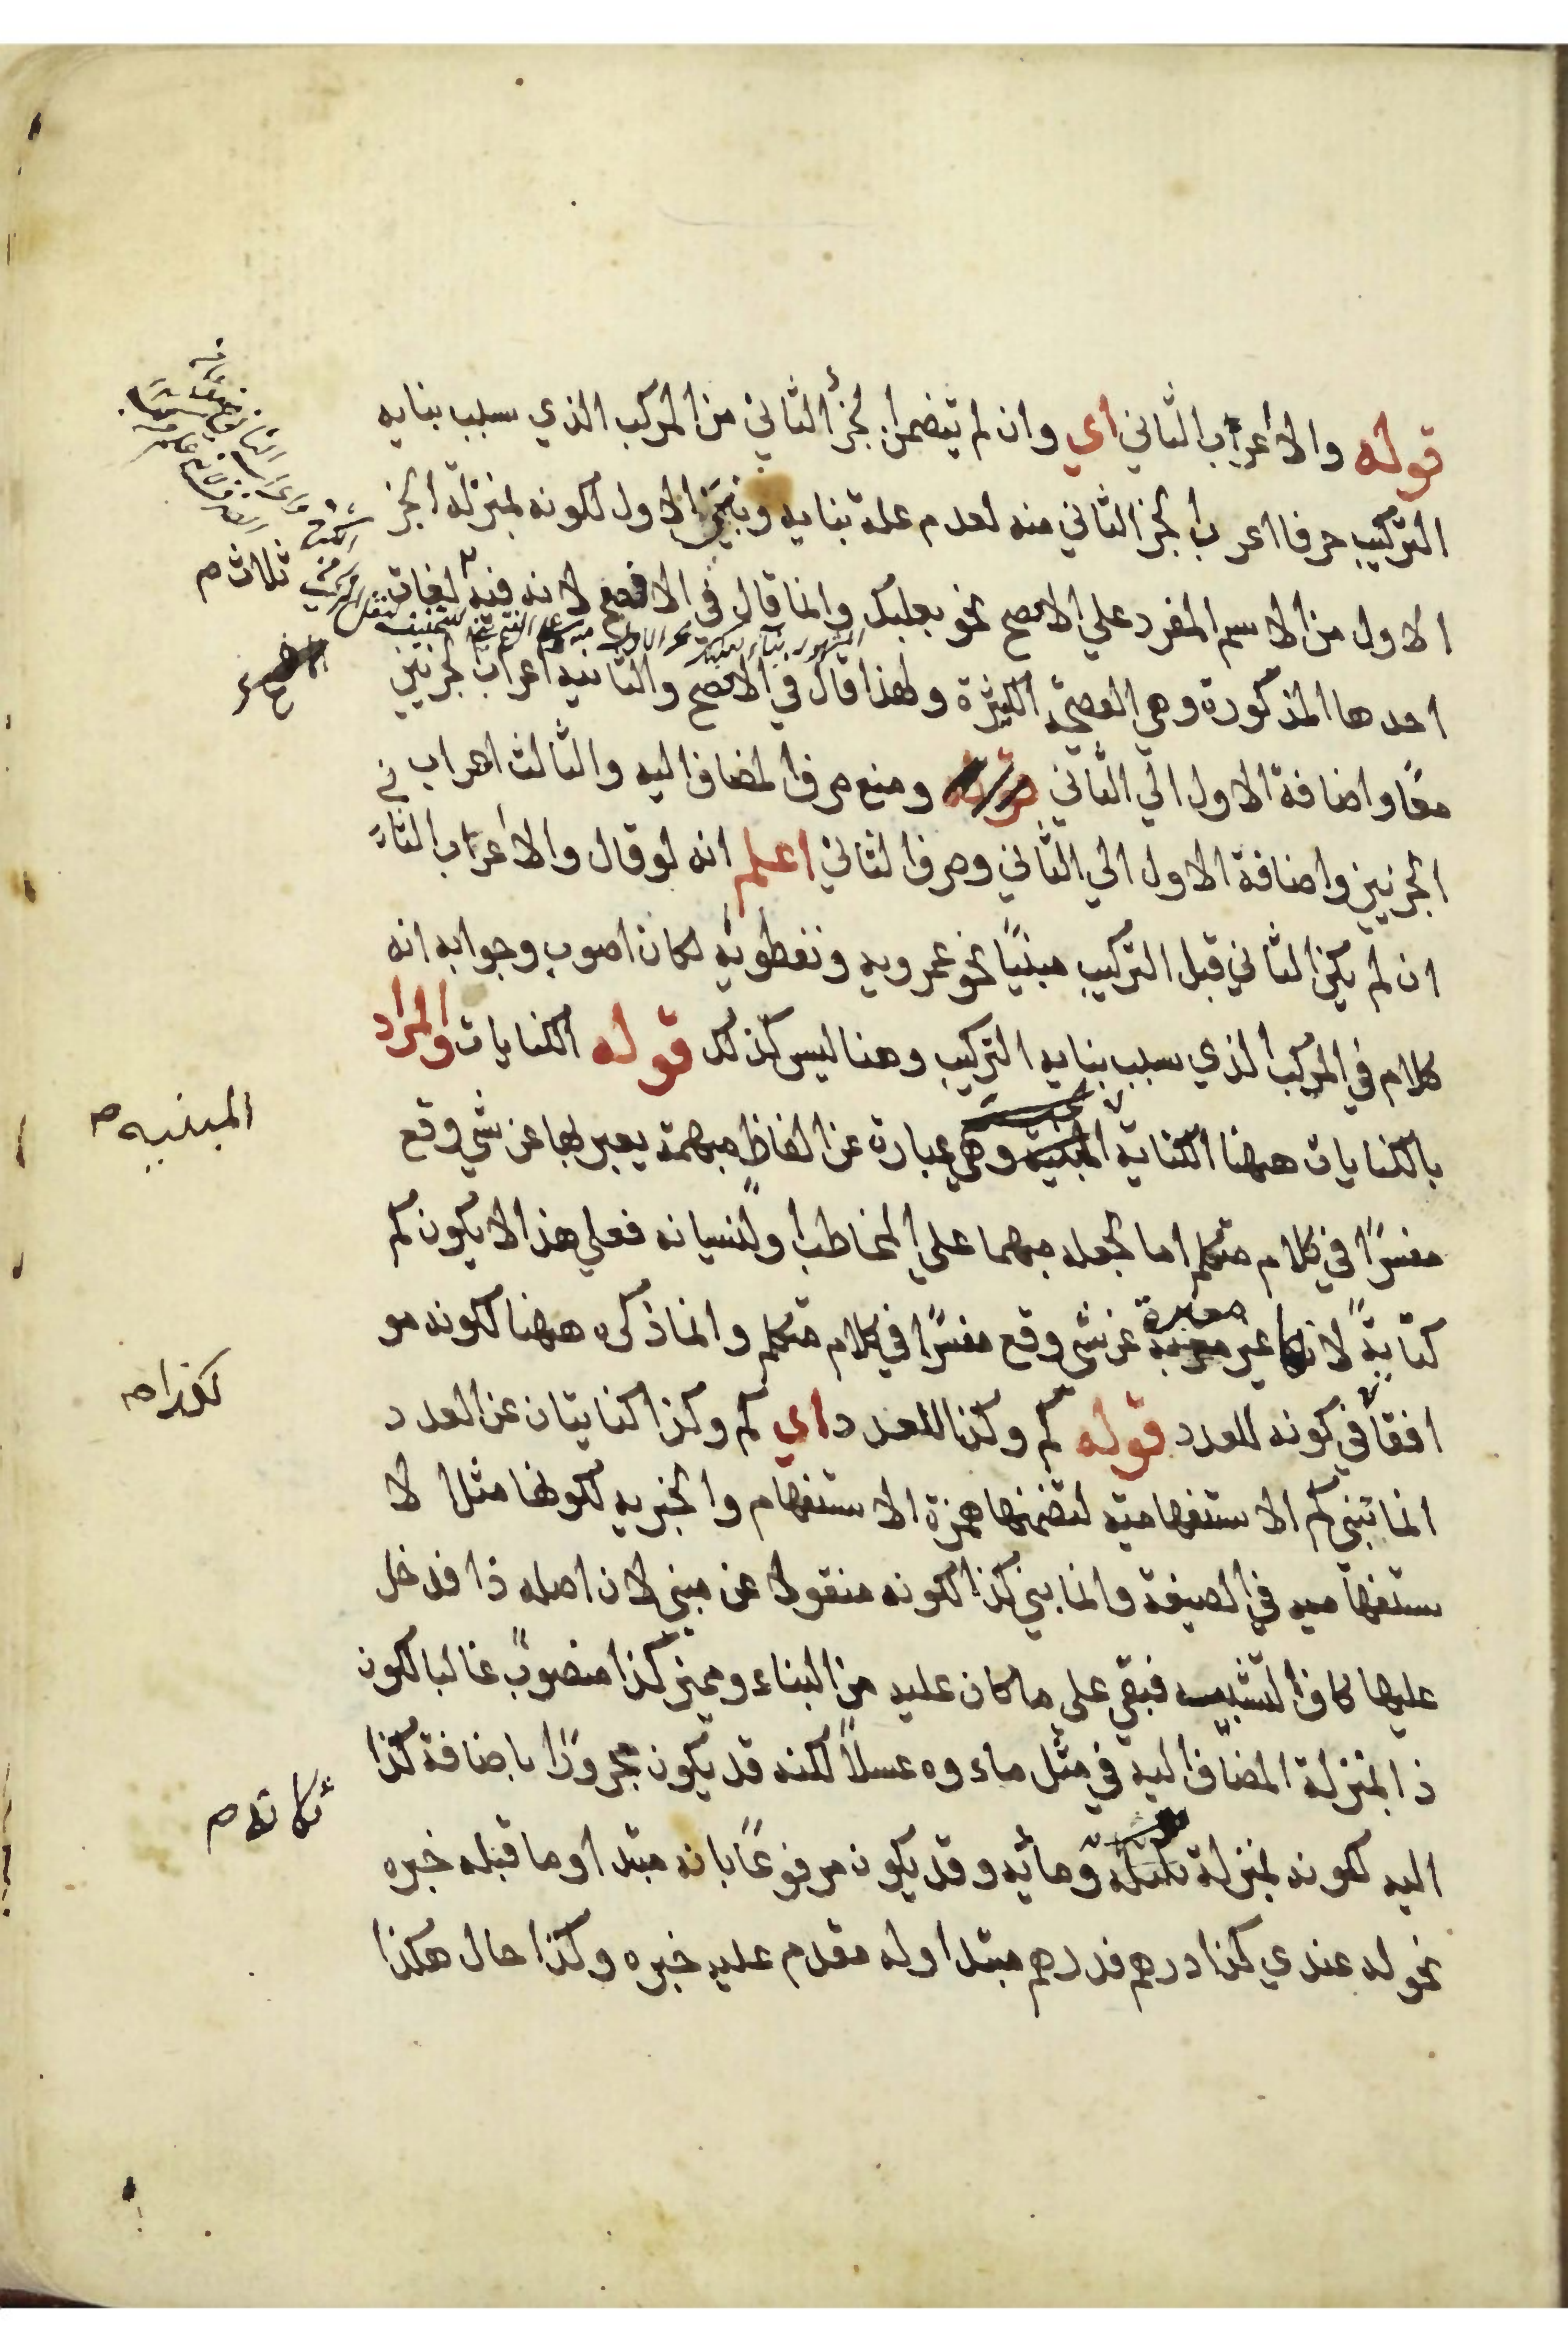 قوله والا أعرب الثاني اي وان لم يتضمن الجزأ الثاني من المركب الذي سبب بنايه
التركيب حرفا اعرب الجز الثاني منه لعدم علة بنايه وبني الاول لكونه بمنزلة الجز
الاول من الاسم المفرد علي الافصح نحو بعلبك وانما قال في الافصح لانه فيه لغات
ثلاث صح
احدها المذكورة وهي الفصحى الكثيرة ولهذا قال في الافصح والثانيه اعراب الجزيين
معًا واضافة الاول الي الثاني ومنع صرف المضاف اليه والثالث اعراب
الجزيين واضافة الاول الي الثاني وصرف الثاني اعلم انه لو قال والا أعرب الثاني
ان لم يكن الثاني قبل التركيب مبنيًا نحو عمرويه ونفطويه لكان اصوب وجوابه انه
كلام في المركب الذي سبب بنايه التركيب وهنا ليس كذلك قوله الكنايات والمراد
بالكنايات ههنا الكناية وهي عبارة عن الفاظ مبهمة يعبر بها عن شي وقع
المبنيه صح
مفسرًا في كلام متكلم اما لجعله مبهما علي المخاطب او لنسيانه فعلي هذا لا يكون كم
كتابيةً لانها غير معبرة عن شي وقع مفسرًا في كلام متكلم وانما ذكره ههنا لكونه مو
افقاً في كونه للعدد قوله كم وكذا للعدد اي كم وكذا كنايتان عن العدد
لكذا صح
انما تبني كم الاستفهامية لتضمنها همزة الاستفهام والخبريه لكونها مثل الا
ستفهاميه في الصيغة وانما بني كذا لكونه منقولا عن مبني لان اصله ذا فدخل
عليها كاف التشبيه فبقي على ما كان عليه من البناء ومميز كذا منصوبٌ غالبا لكون
ذا بمنزلة المضاف اليه في مثل ماءوه عسلاً لكنه قد يكون مجرورًا باضافة كذا
اليه لكونه بمنزلة ومائيه وقد يكون مرفوعًا بانه مبتدا وما قبله خبره
ثلاثه صح
نحو له عندي كذا درهم فدرهم مبتدا وله مقدم عليه خبره وكذا حال هكذا